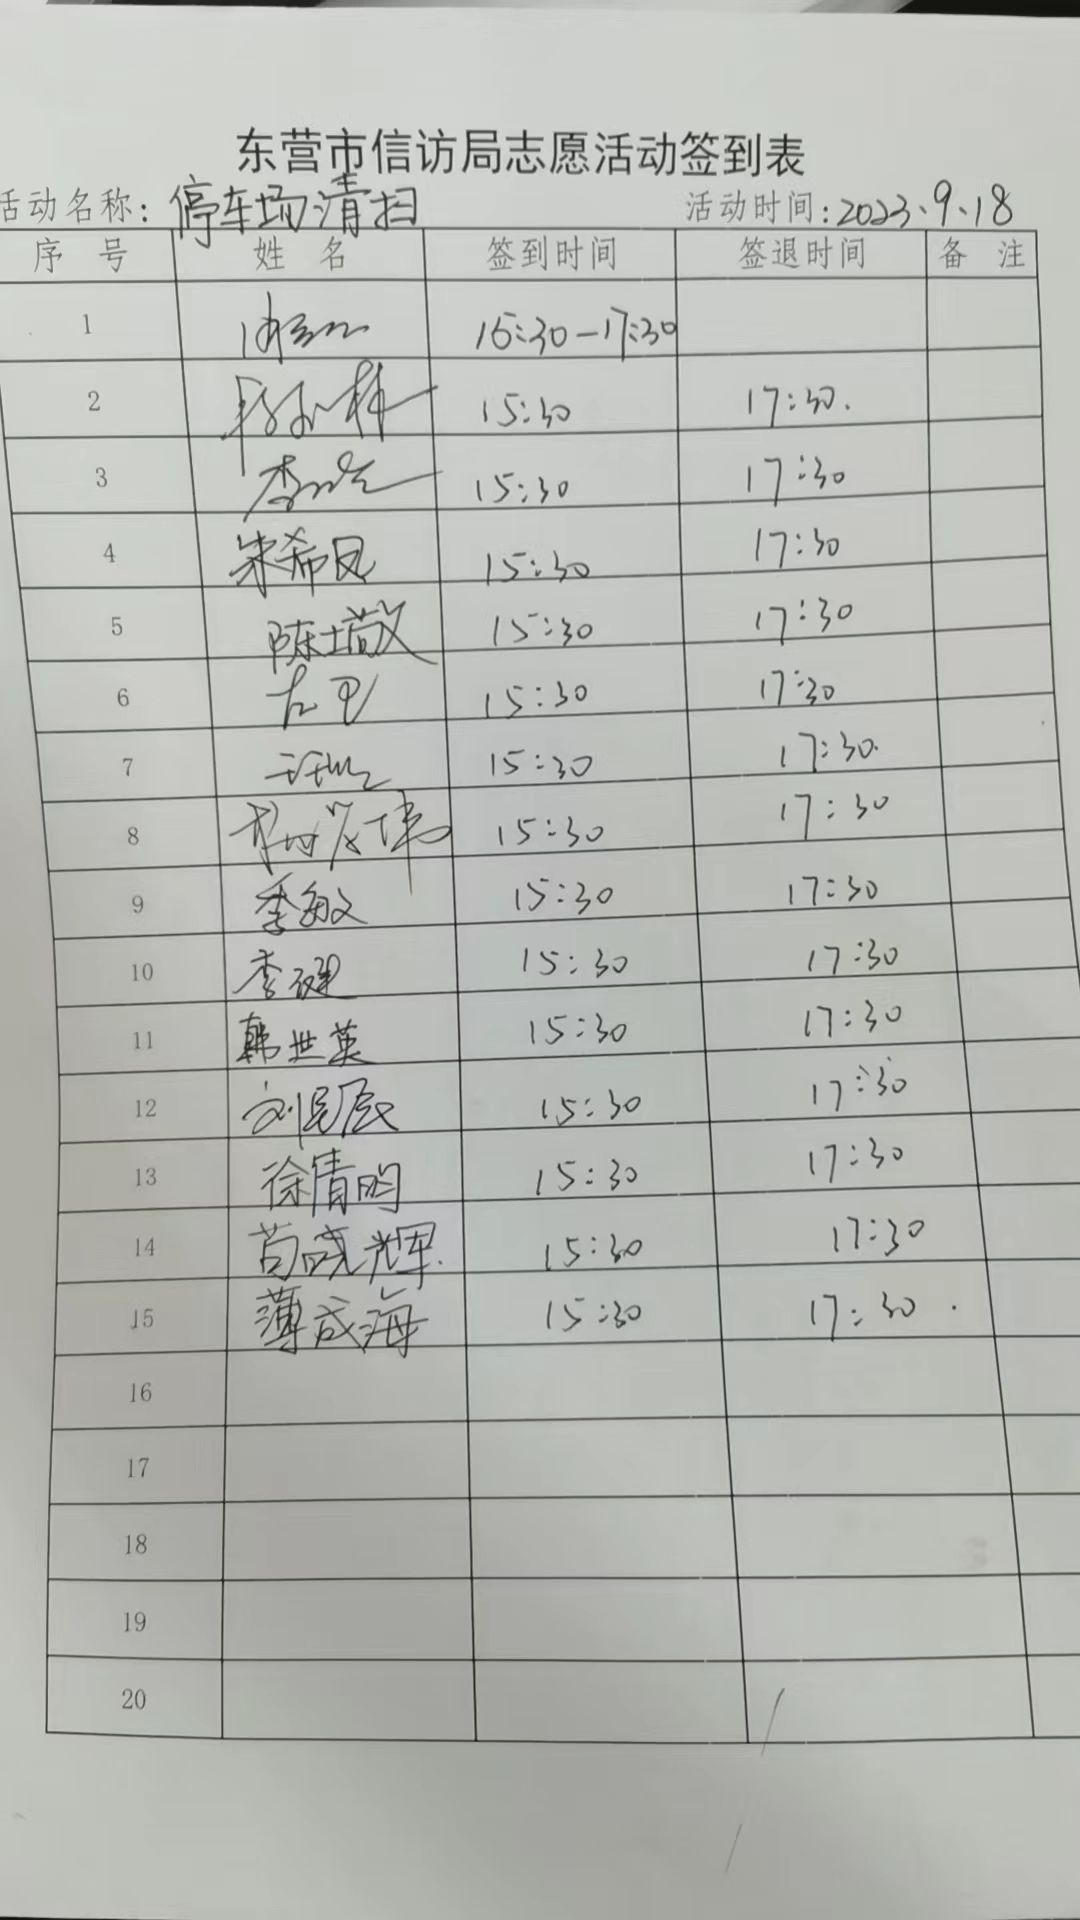 东营市信访局志愿活动签到表
活动名称：停车场清扫 活动时间：2023.9.18
序号 姓名 签到时间 签退时间 备注
1 15:30-17:30
2 15:30 17:30.
3 15:30 17:30
4 朱希凤 15:30 17:30
5 陈培敬 15:30 17:30
6 15:30 17:30
7 15:30 17:30.
8 15:30 17:30
9 季敏 15:30 17:30
10 李健 15:30 17:30
11 韩世英 15:30 17:30
12 15:30 17:30
13 徐倩昀 15:30 17:30
14 苟晓辉. 15:30 17:30
15 薄成海 15:30 17:30.
16
17
18
19
20